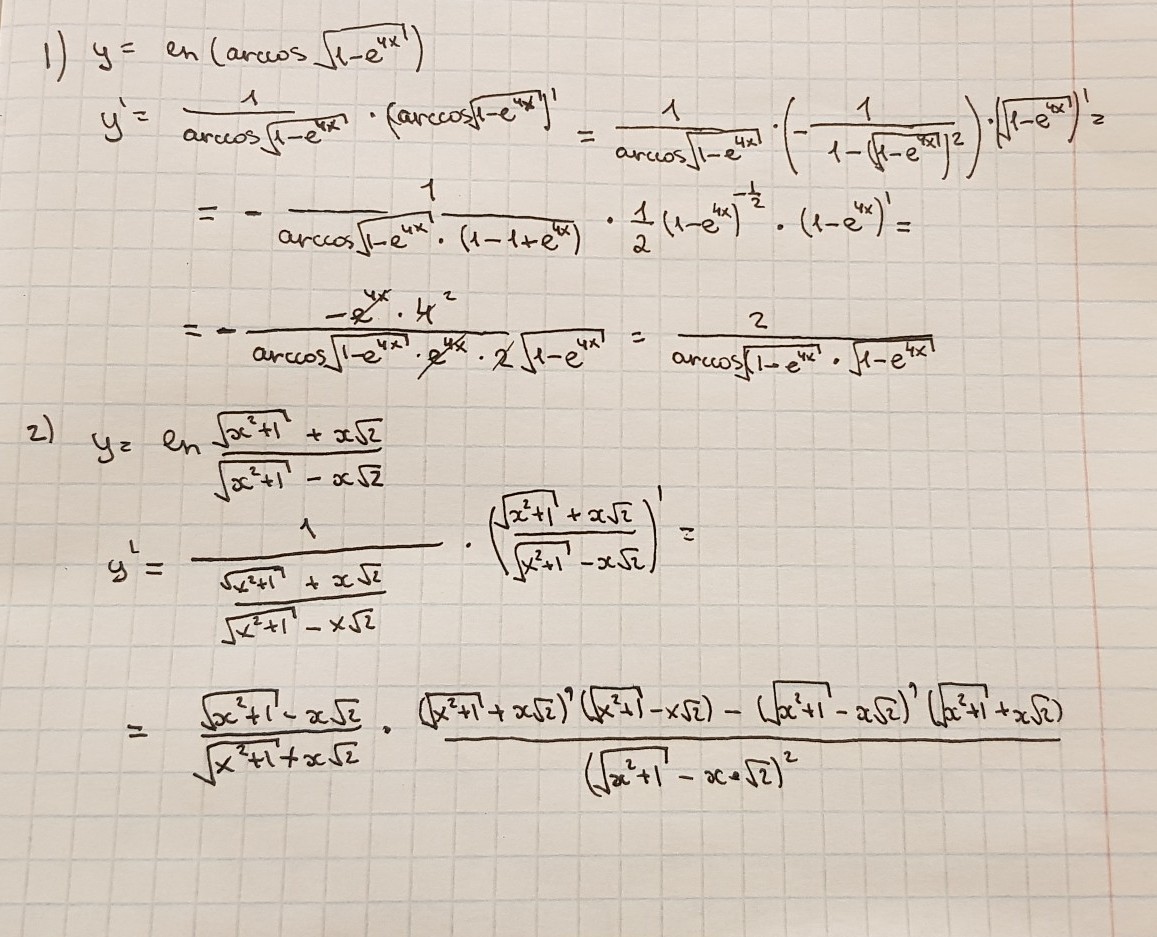 1) y = ln (arccos √(1-e^{4x}))
y' = 1/(arccos√(1-e^{4x})) · (arccos√(1-e^{4x}))' = 1/(arccos√(1-e^{4x})) · (- 1/(1-(√(1-e^{4x}))^2)) · (√(1-e^{4x}))' =
= - 1/(arccos√(1-e^{4x}) · (1-1+e^{4x})) · 1/2 (1-e^{4x})^{-1/2} · (1-e^{4x})' =
= - (-e^{4x} · 4^2)/(arccos√(1-e^{4x}) · e^{4x} · 2√(1-e^{4x})) = 2/(arccos√(1-e^{4x}) · √(1-e^{4x}))
2) y = ln (√(x^2+1) + x√2)/(√(x^2+1) - x√2)
y' = 1/((√(x^2+1) + x√2)/(√(x^2+1) - x√2)) · ((√(x^2+1) + x√2)/(√(x^2+1) - x√2))' =
= (√(x^2+1) - x√2)/(√(x^2+1) + x√2) · ((√(x^2+1) + x√2)' (√(x^2+1) - x√2) - (√(x^2+1) - x√2)' (√(x^2+1) + x√2))/(√(x^2+1) - x·√2)^2